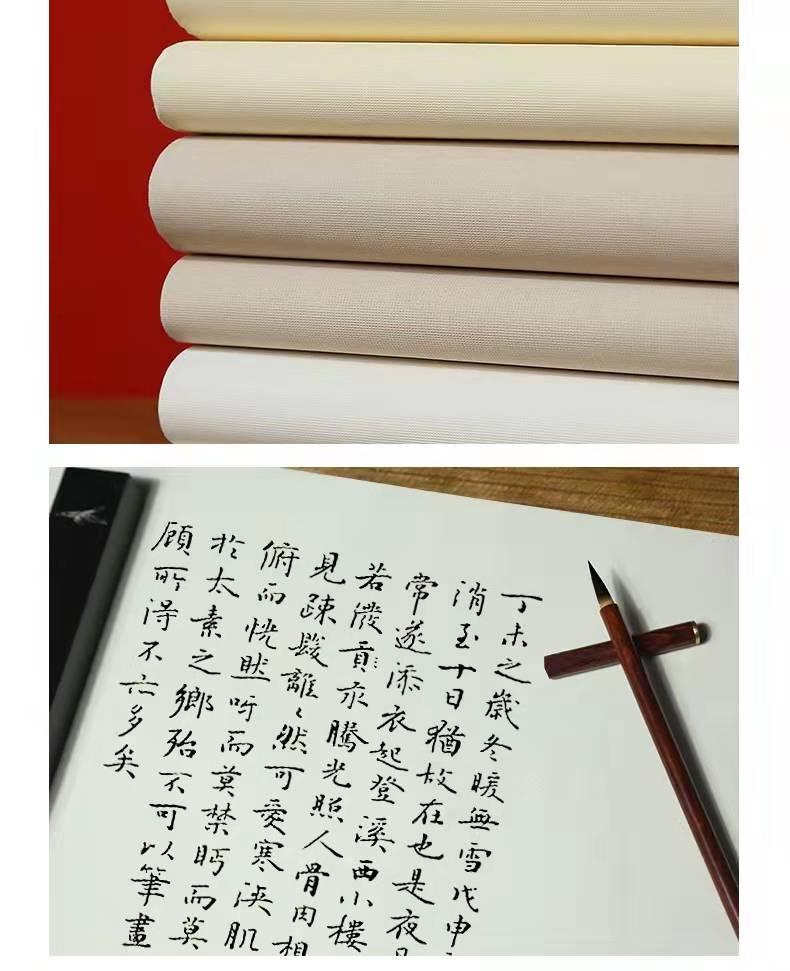 丁未之歲冬暖無雪戊申
消至十日猶故在也是夜月
常遂添衣起登溪西小樓
若汞騰光照人骨肉相
見疎離々然可愛寒浹肌
俯而恍然呀而莫禁眄而莫
於太素之鄉殆不可以筆畫
顧所得不亦多矣